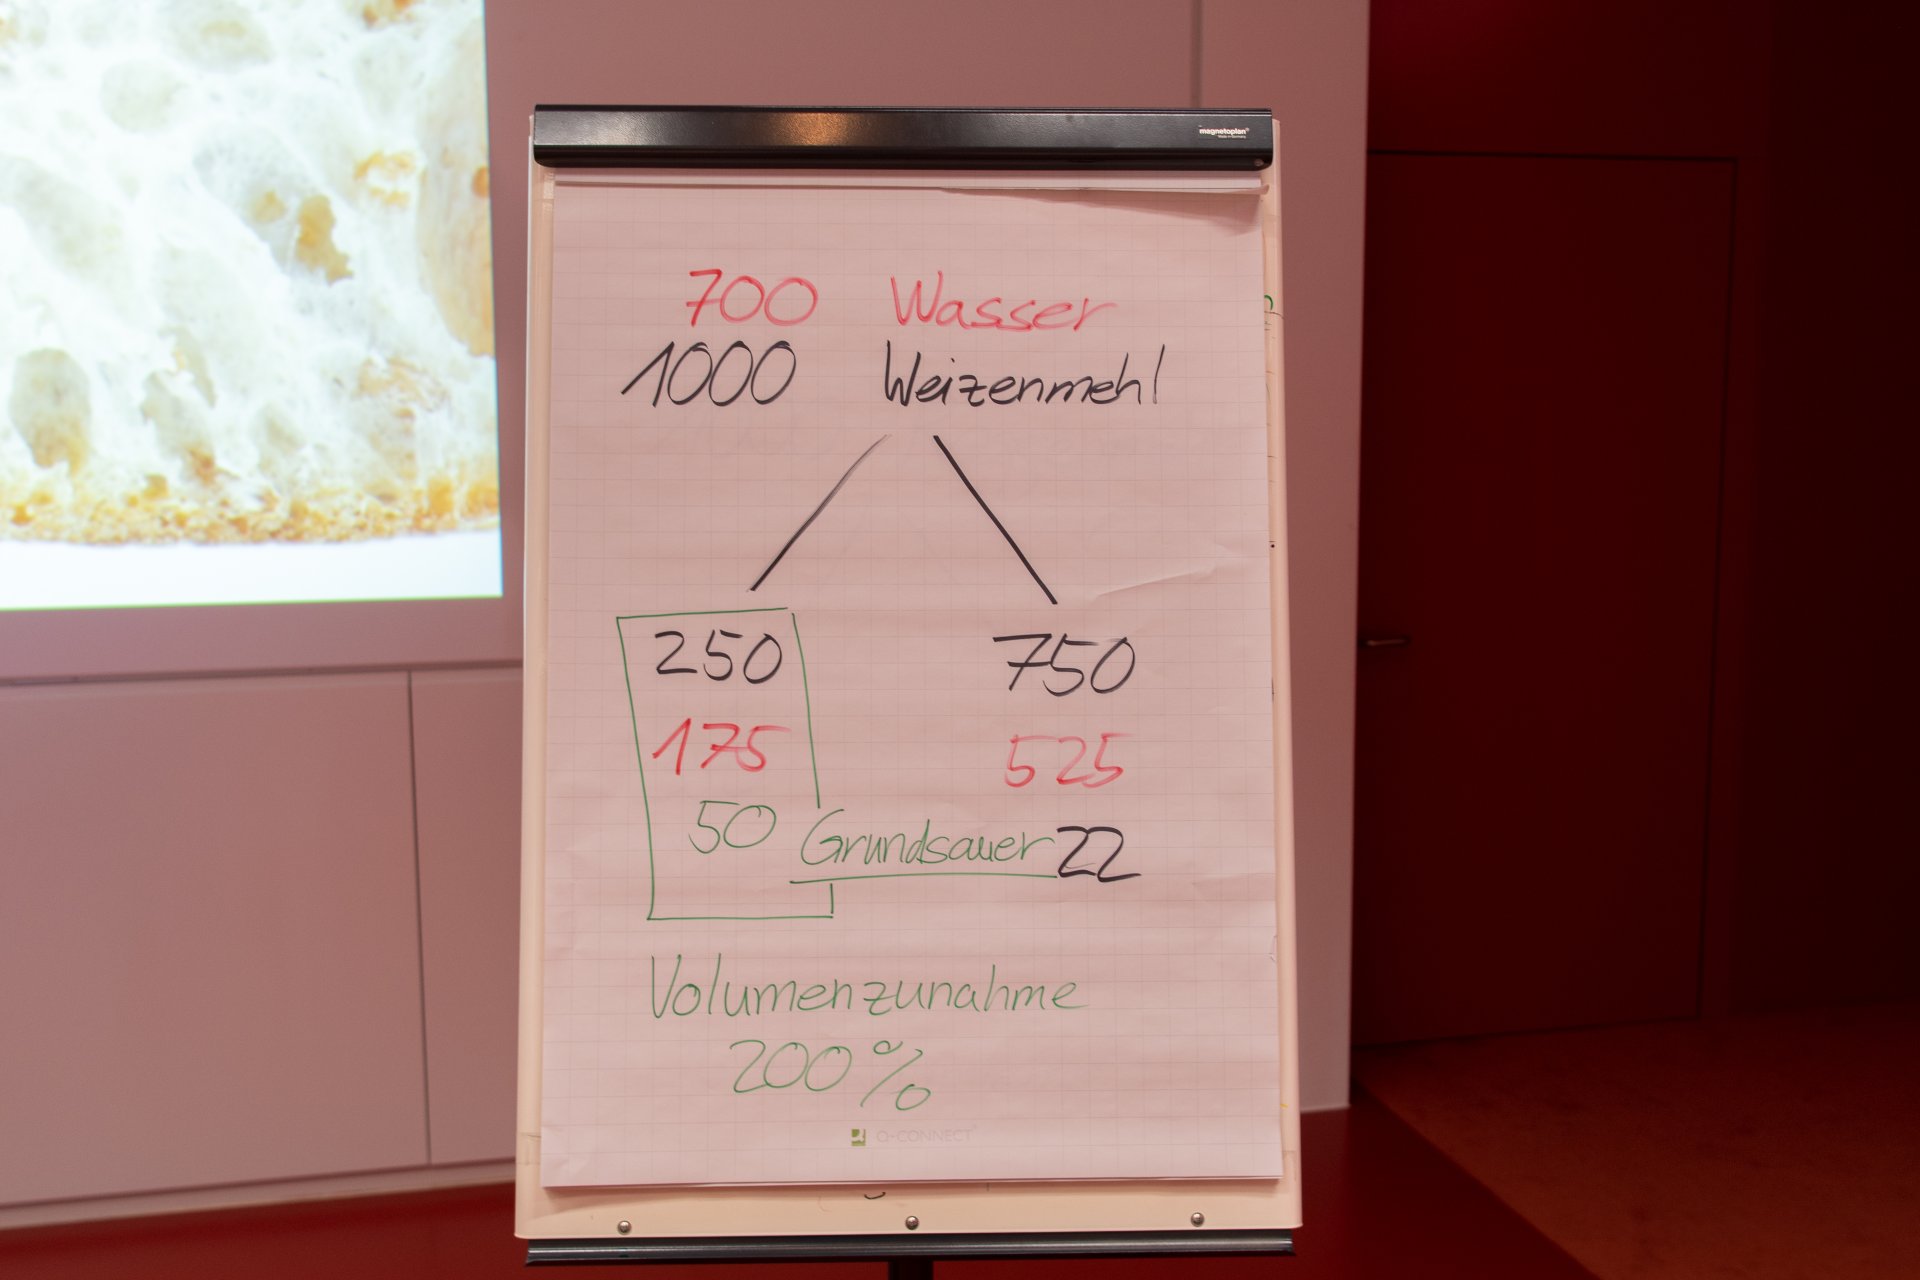 magnetoplan®
Made in Germany
700 Wasser
1000 Weizenmehl
250 750
175 525
50 Grundsauer 22
Volumenzunahme
200%
Q-CONNECT®